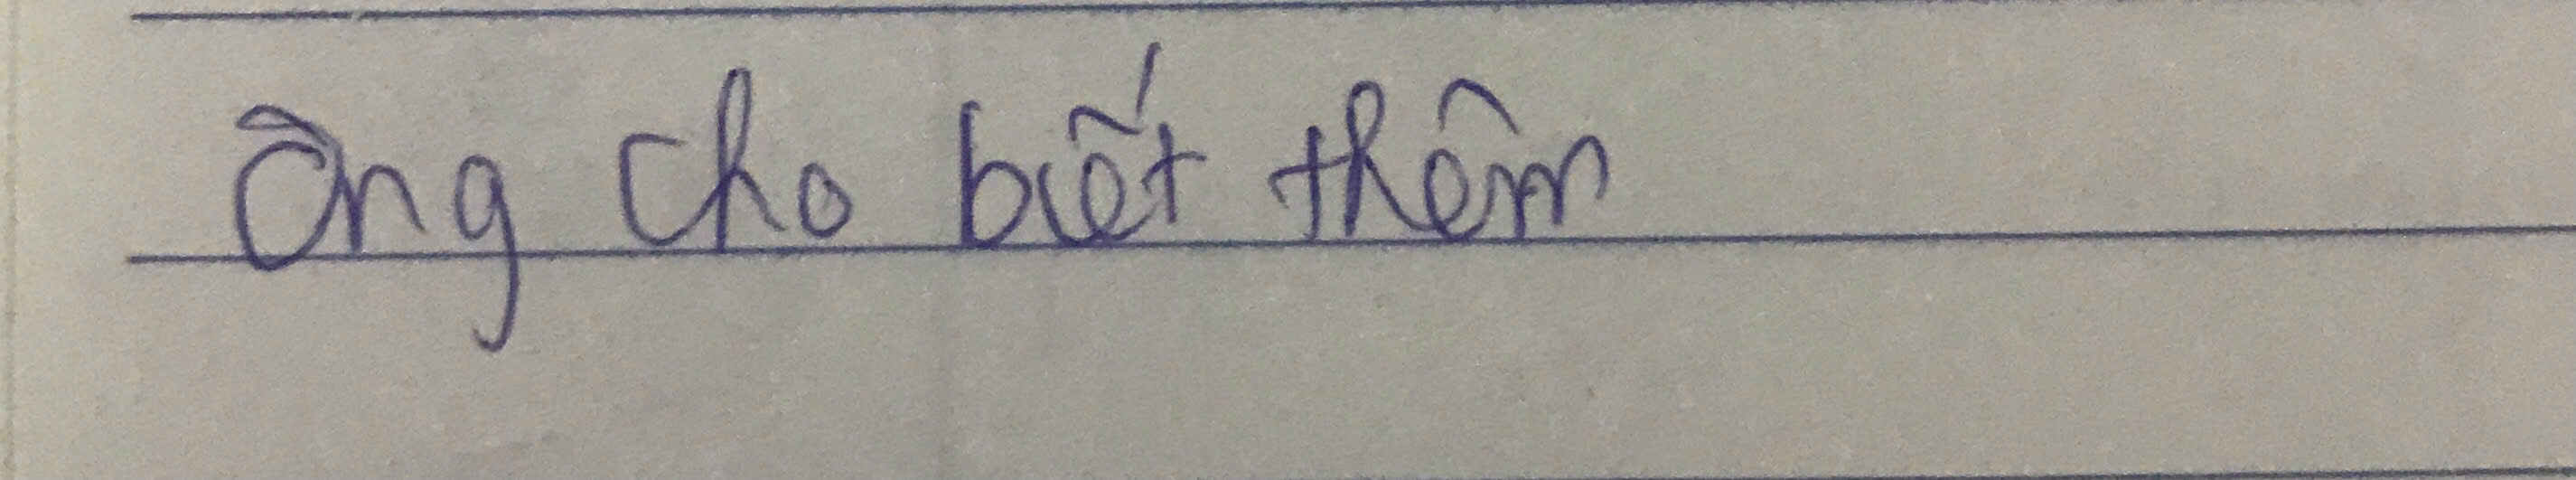 ông cho biết thêm